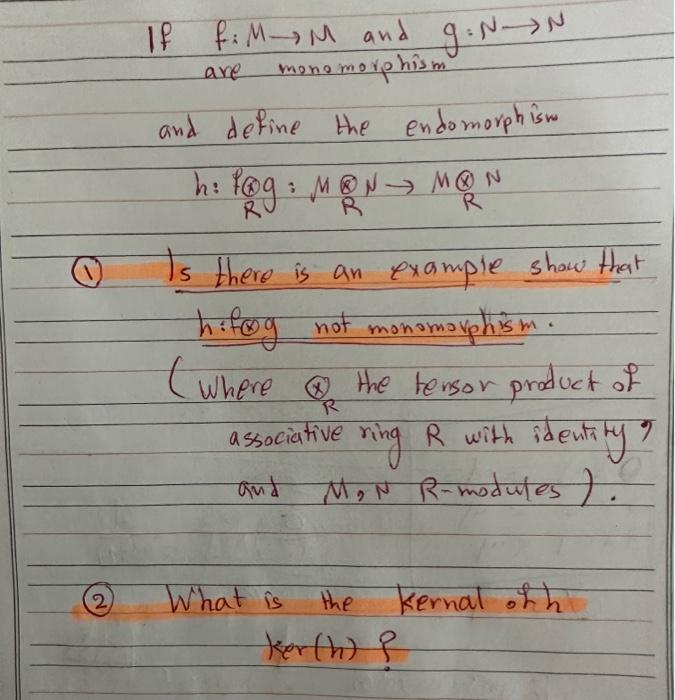 If f: M → M and g: N → N
are monomorphism
and define the endomorphism
h: f⊗g : M⊗N → M⊗N
R R R
① Is there is an example show that
h: f⊗g not monomorphism.
(where ⊗ the tensor product of
R
associative ring R with identity,
and M, N R-modules).
② What is the kernal of h
ker(h) ?